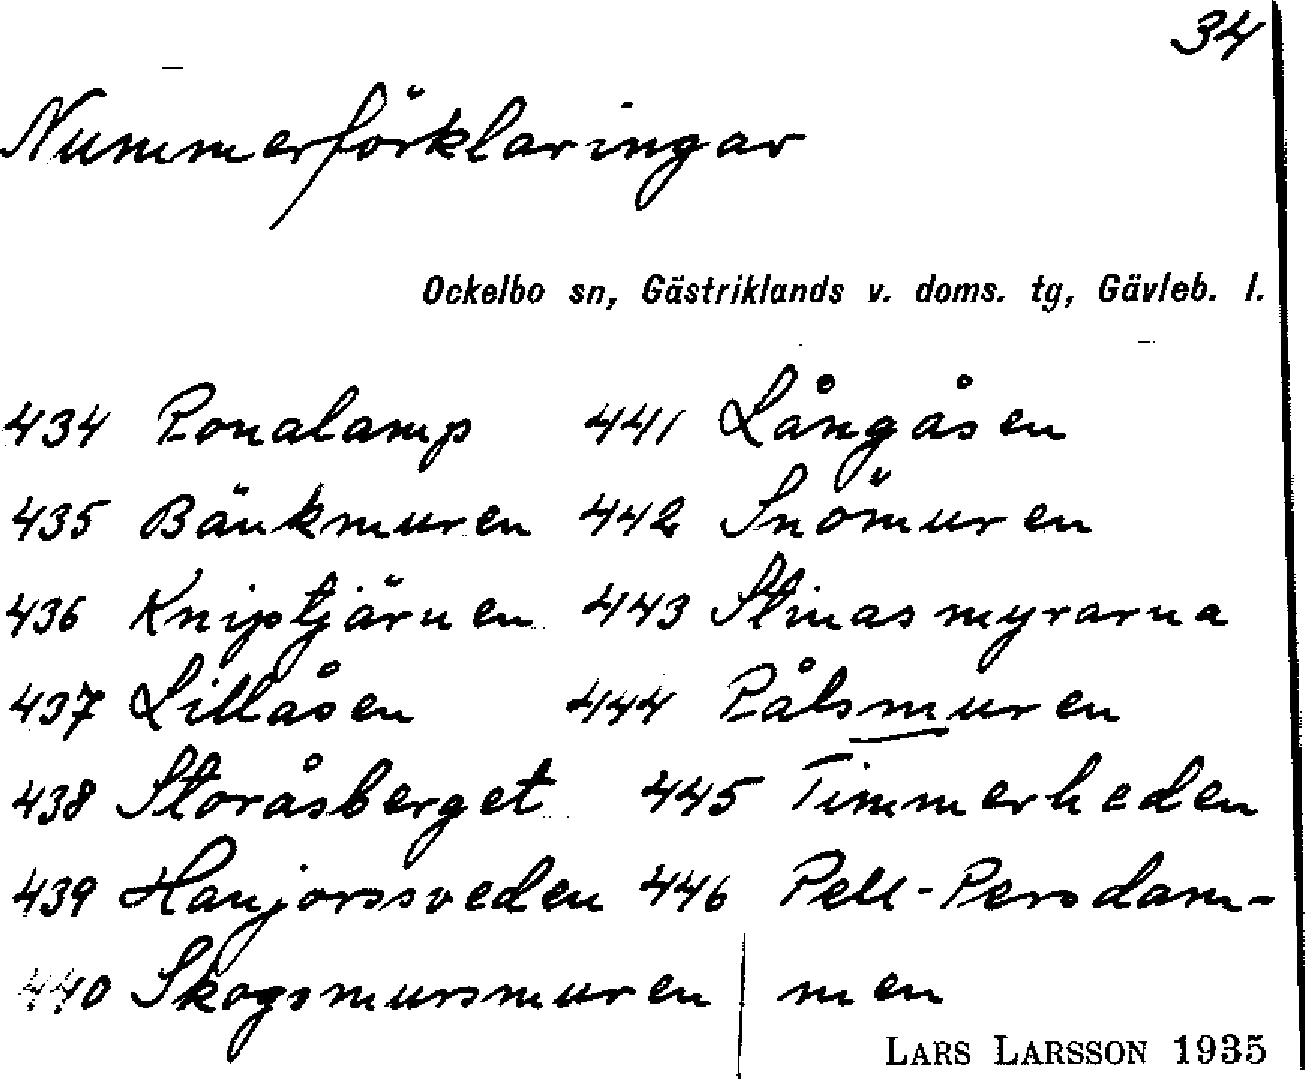 34
Nummerförklaringar
Ockelbo sn, Gästriklands v. doms. tg, Gävleb. l.
434 Ronalamp 441 Långåsen
435 Bänkmuren 442 Snömuren
436 Kniptjärnen 443 Stinasmyrarna
437 Lillåsen 444 Pålsmuren
438 Storåsberget 445 Timmerheden
439 Hanjorssveden 446 Pell-Persdam-
440 Skogsmursmuren men
LARS LARSSON 1935